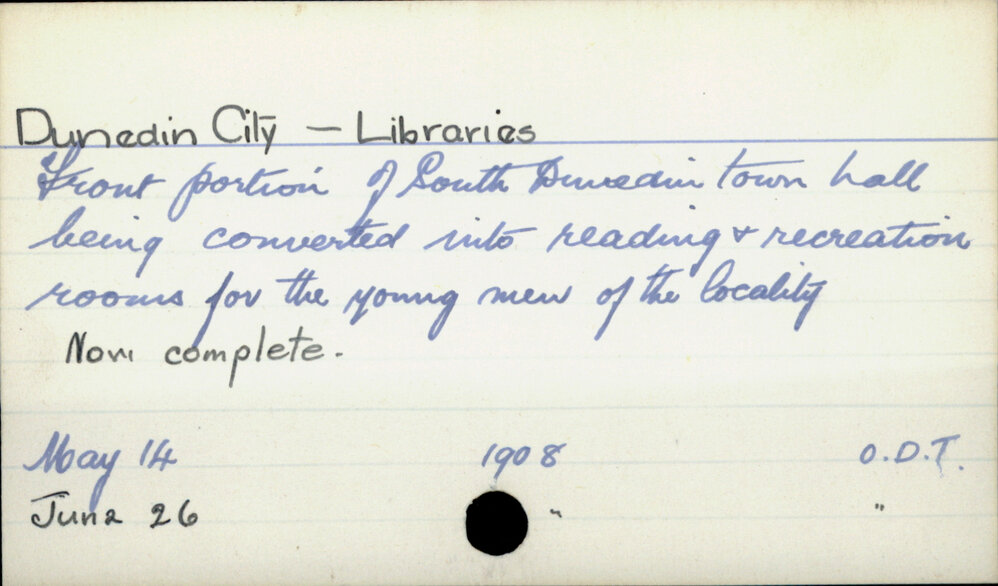 Dunedin City — Libraries
Front portion of South Dunedin town hall
being converted into reading & recreation
rooms for the young men of the locality
Now complete.
May 14 1908 O.D.T.
June 26 " "